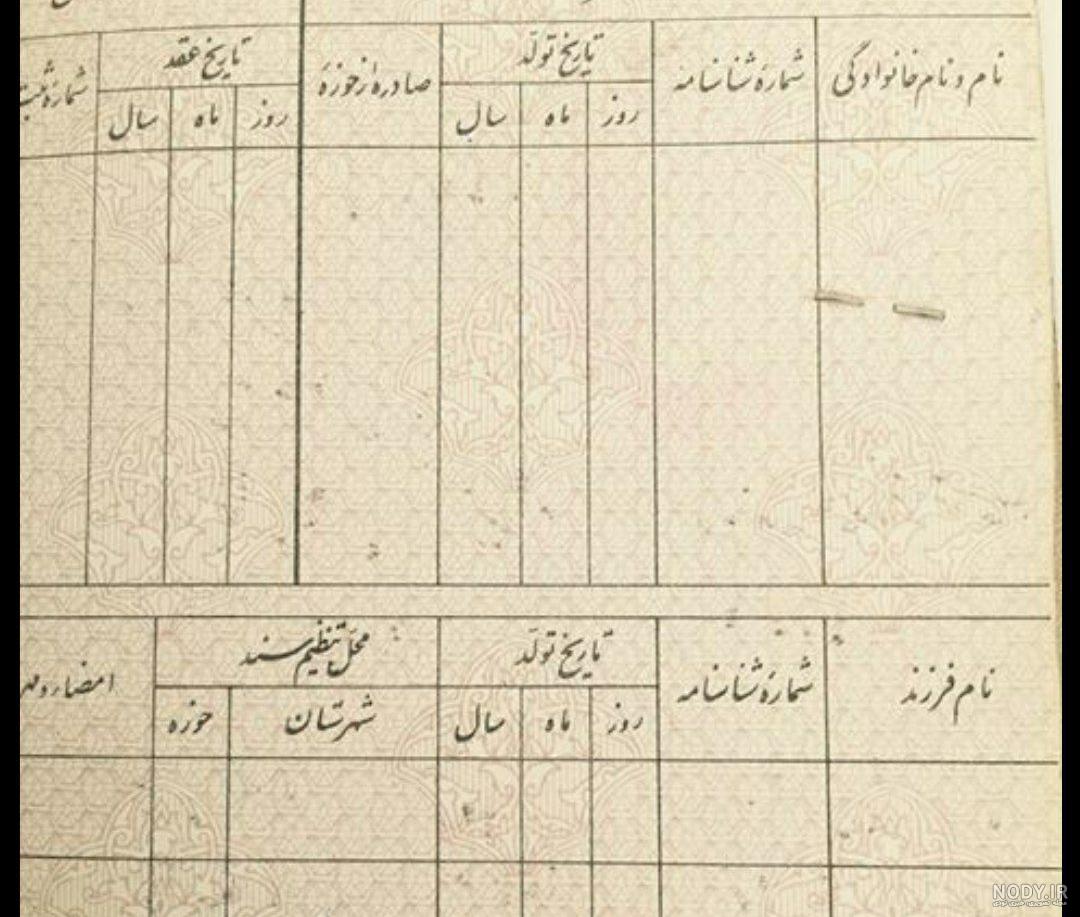 نام و نام خانوادگی شمارهٔ شناسنامه تاریخ تولد صادره از حوزهٔ تاریخ عقد شمارهٔ
روز ماه سال روز ماه سال
نام فرزند شمارهٔ شناسنامه تاریخ تولد محل تنظیم سند
روز ماه سال شهرستان حوزه
NODY.IR